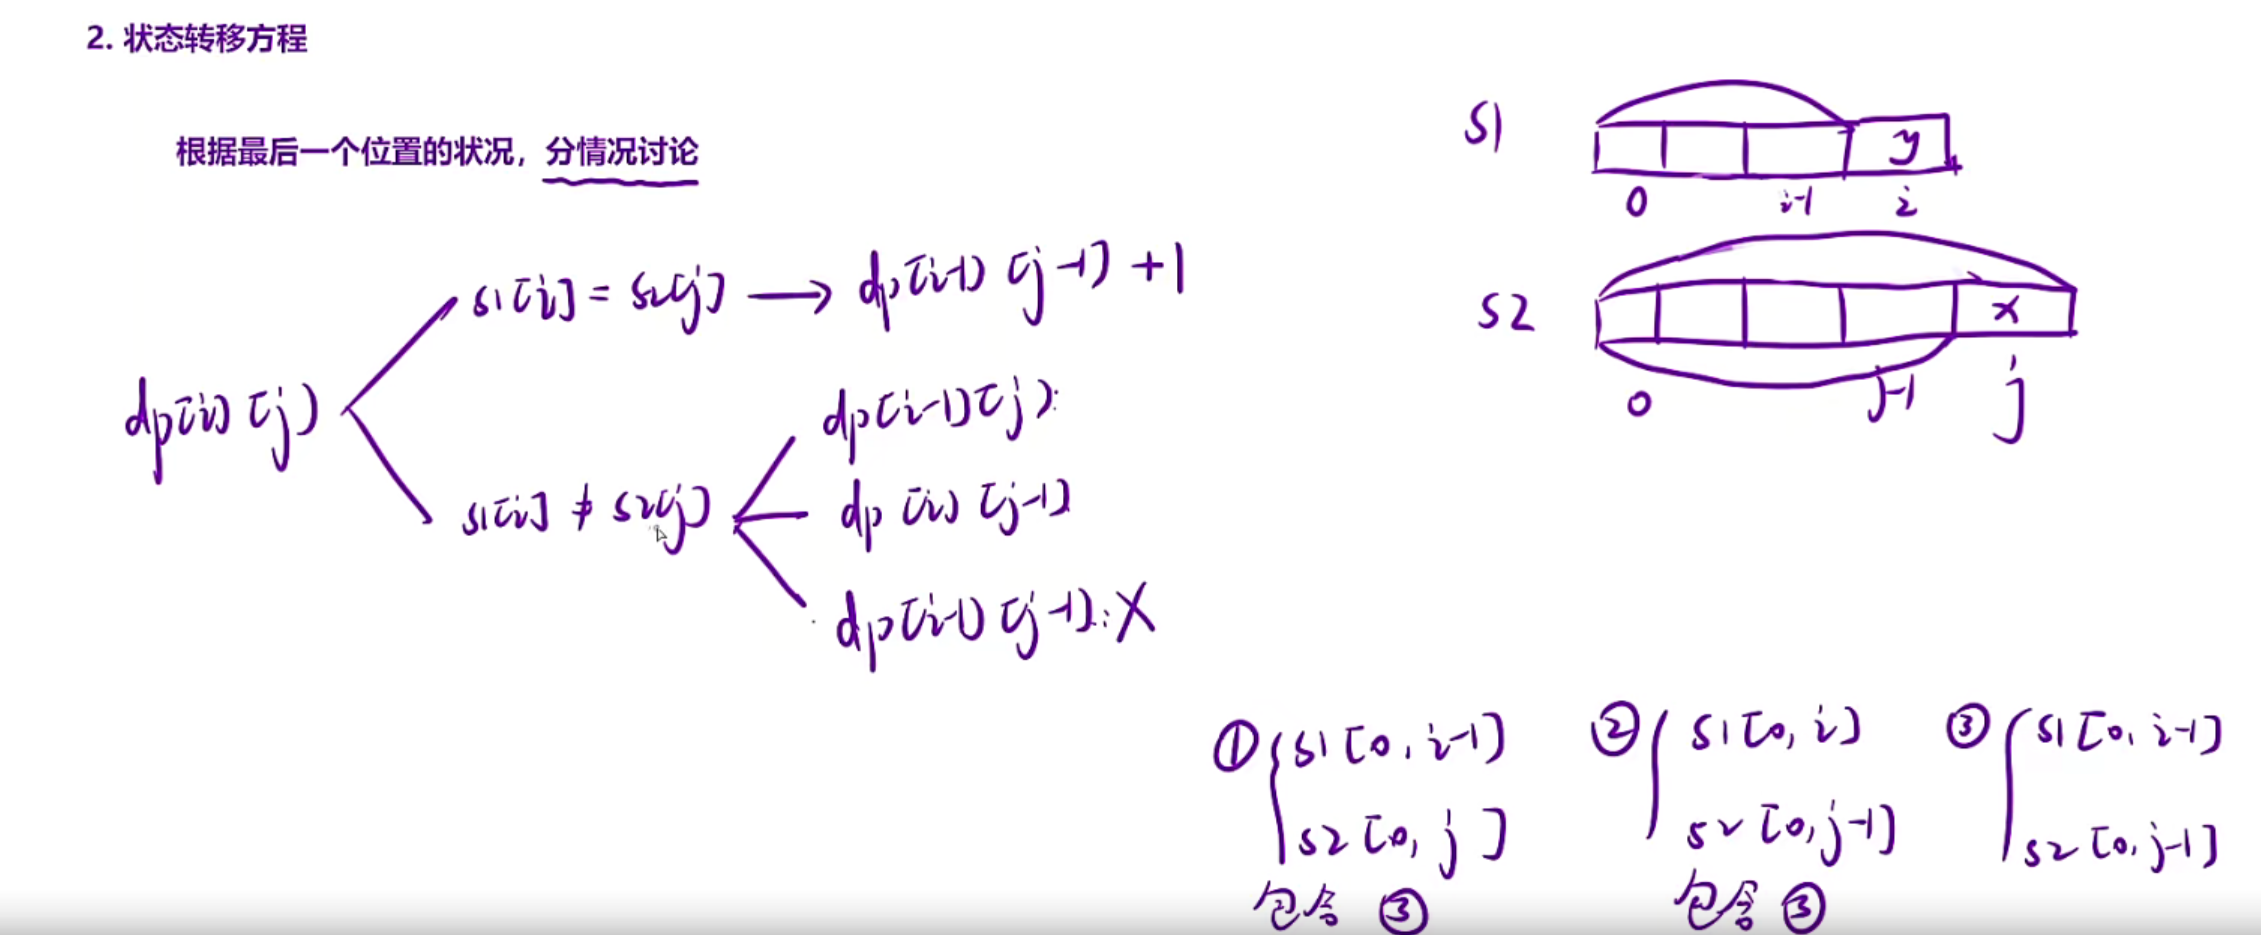 2. 状态转移方程
根据最后一个位置的状况，分情况讨论
dp[i][j]
s1[i] = s2[j] → dp[i-1][j-1] + 1
s1[i] ≠ s2[j]
dp[i-1][j]:
dp[i][j-1]
dp[i-1][j-1]: X
S1
y
0 i-1 i
S2
x
0 j-1 j
① s1[0, i-1]
s2[0, j]
包含 ③
② s1[0, i]
s2[0, j-1]
包含 ③
③ s1[0, i-1]
s2[0, j-1]